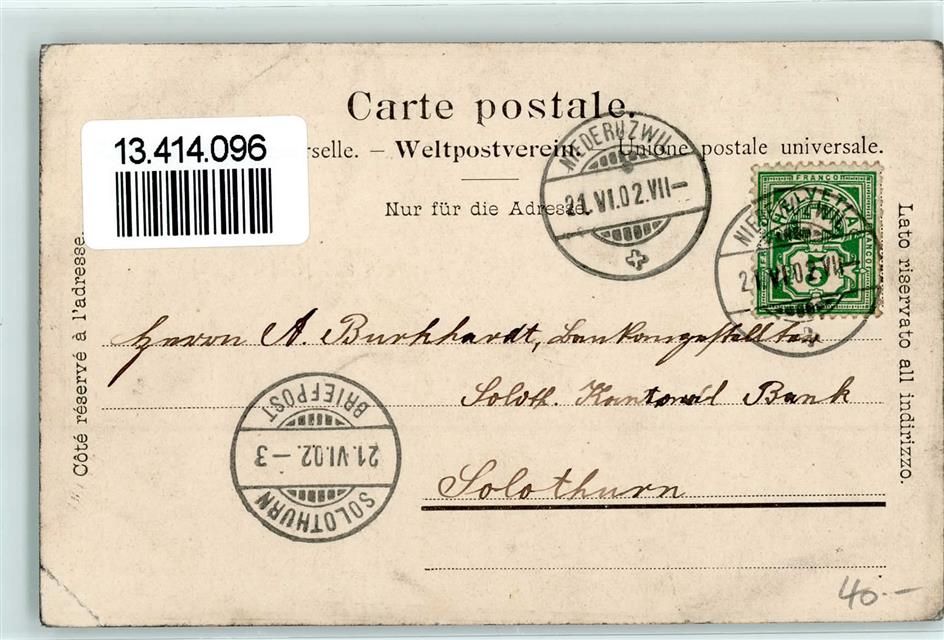 Carte postale.
13.414.096
rselle. – Weltpostverein. Unione postale universale.
Nur für die Adresse.
NIEDERUZWIL
21.VI.02.VII–
FRANCO
HELVETIA
FRANCO
5
21.VI.02.VII–
Côté réservé à l'adresse.
Lato riservato all indirizzo.
Herrn A. Burkhardt, Bankangestellter
Soloth. Kantonal Bank
Solothurn
BRIEFPOST
21.VI.02.–3
SOLOTHURN
40.–